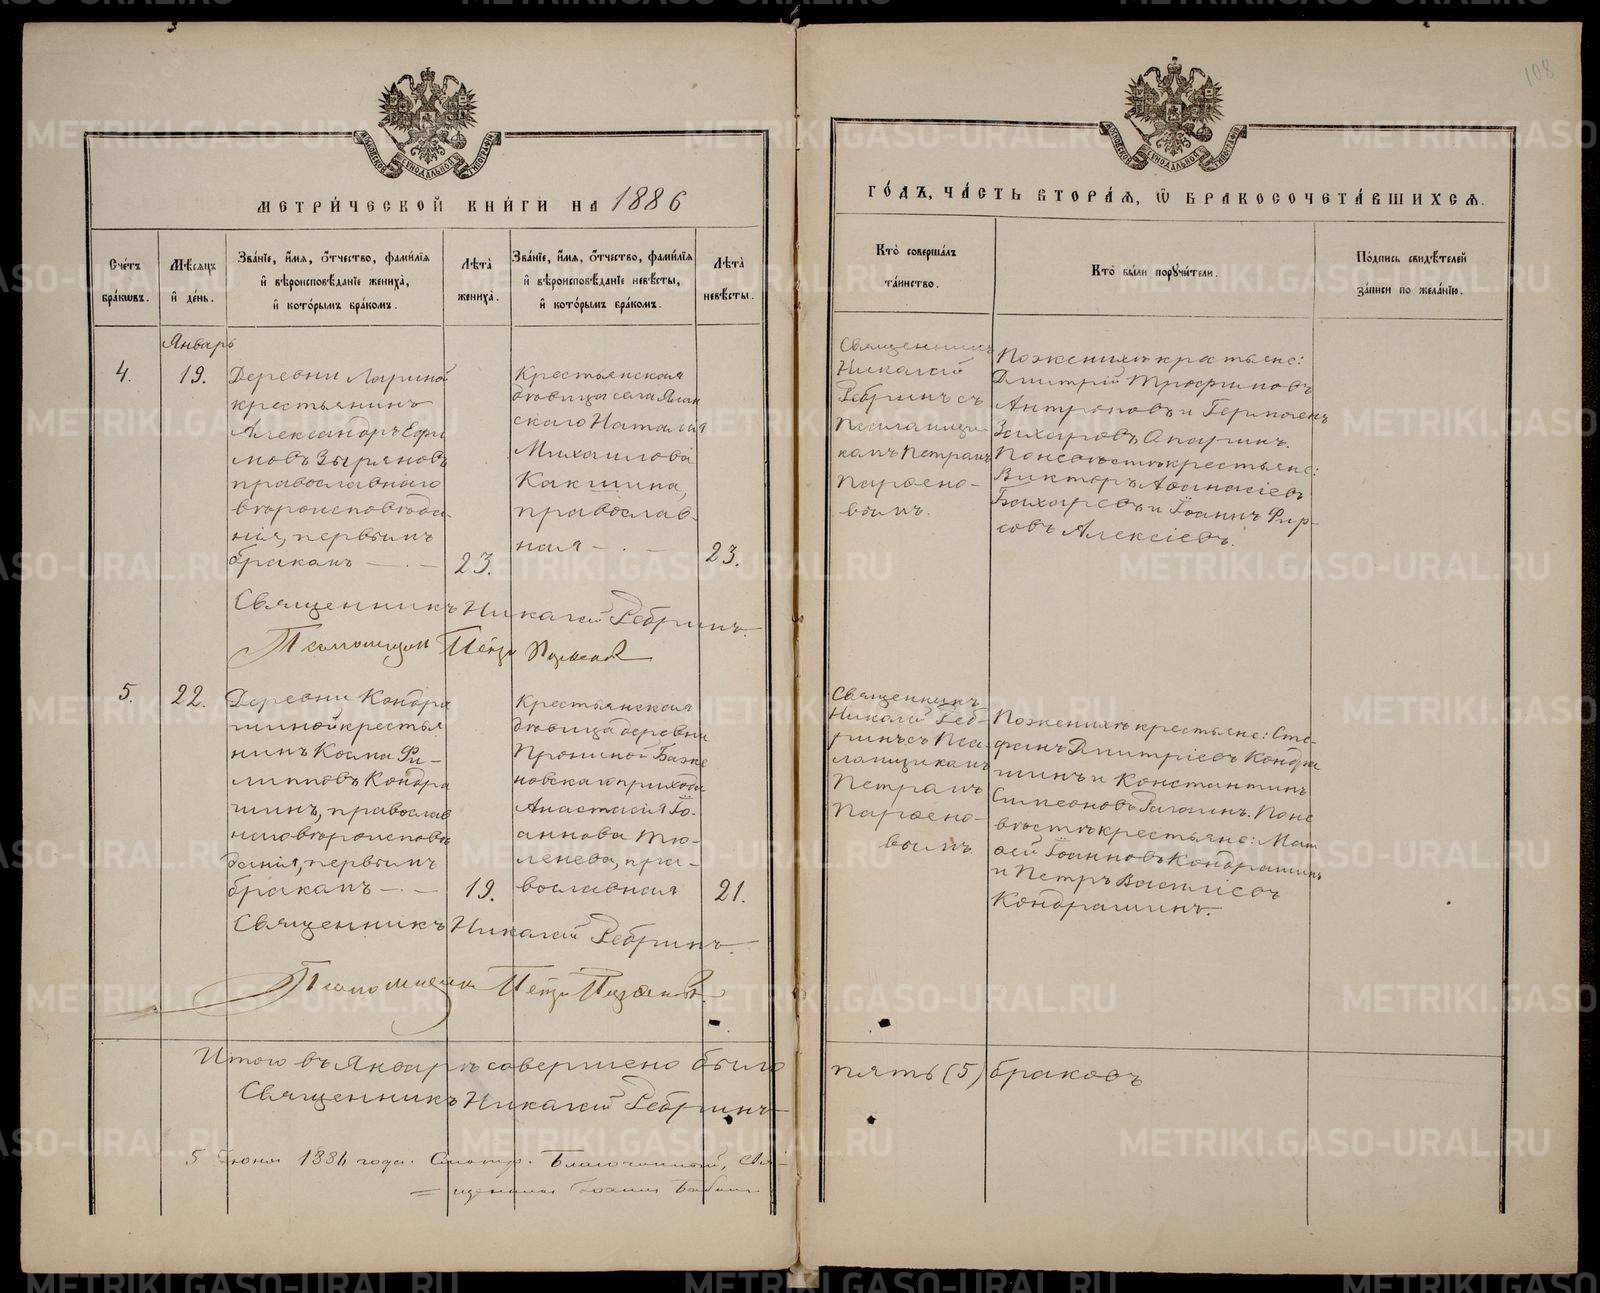 108
МЕТРИ́ЧЕСКОЙ КНИ́ГИ НА 1886
ГО́ДЪ, ЧА́СТЬ ВТОРА́Я, Ѡ БРАКОСОЧЕТА́ВШИХСЯ.
Сче́тъ бра́кѡвъ.
Мѣ́сяцъ и҆ де́нь.
Зва́нїе, и҆́мя, ѻ҆́тчество, фами́лїя
и҆ вѣроисповѣ́данїе жениха̀,
и҆ кото́рымъ бра́комъ.
Лѣ́та жениха̀.
Зва́нїе, и҆́мя, ѻ҆́тчество, фами́лїя
и҆ вѣроисповѣ́данїе невѣ́сты,
и҆ кото́рымъ бра́комъ.
Лѣ́та невѣ́сты.
Кто̀ соверша́лъ
та́инство.
Кто̀ бы́ли поручи́тели.
По́дпись свидѣ́телей
за́писи по жела́нїю.
Январь
4.
19.
Деревни Лариной
крестьянинъ
Александръ Ефи
мовъ Зыряновъ
православнаго
вѣроисповѣда-
нія, первымъ
бракомъ
23.
Крестьянская
дѣвица села
скаго Наталія
Михаилова
Какшина,
православ-
ная
23.
Священникъ
Николай
Ребринъ съ
Псаломщи-
комъ Петромъ
Парѳено-
вымъ.
По женихѣ крестьяне:
Дмитрій Трофимовъ
Антроповъ и Гермогенъ
Захаровъ Опаринъ.
По невѣстѣ крестьяне:
Викторъ Аѳанасіевъ
Бахаревъ и Іоаннъ Фир-
совъ Алексіевъ.
Священникъ Николай Ребринъ.
Псаломщикъ Петръ Парѳеновъ
5.
22.
Деревни Кондра
шиной крестья
нинъ Косма Фи-
липповъ Кондра
шинъ, православ
наго вѣроисповѣ
данія, первымъ
бракомъ
19.
Крестьянская
дѣвица деревни
Прониной Баже
новскаго прихода
Анастасія Іо-
аннова Тю-
ленева, пра-
вославная
21.
Священникъ
Николай Реб-
ринъ съ Пса-
ломщикомъ
Петромъ
Парѳено-
вымъ
По женихѣ крестьяне: Сте-
фанъ Дмитріевъ Кондра
шинъ и Константинъ
Симеоновъ. По не
вѣстѣ крестьяне: Мат
ѳей Іоанновъ Кондрашинъ
и Петръ Василіевъ
Кондрашинъ.
Священникъ Николай Ребринъ.
Псаломщикъ Петръ Парѳеновъ.
Итого въ Январѣ совершено было пять (5) браковъ
Священникъ Николай Ребринъ
5 Іюня 1886 года. Смотр. Благочинный, Свя-
= щенникъ Іоаннъ
METRIKI.GASO-URAL.RU